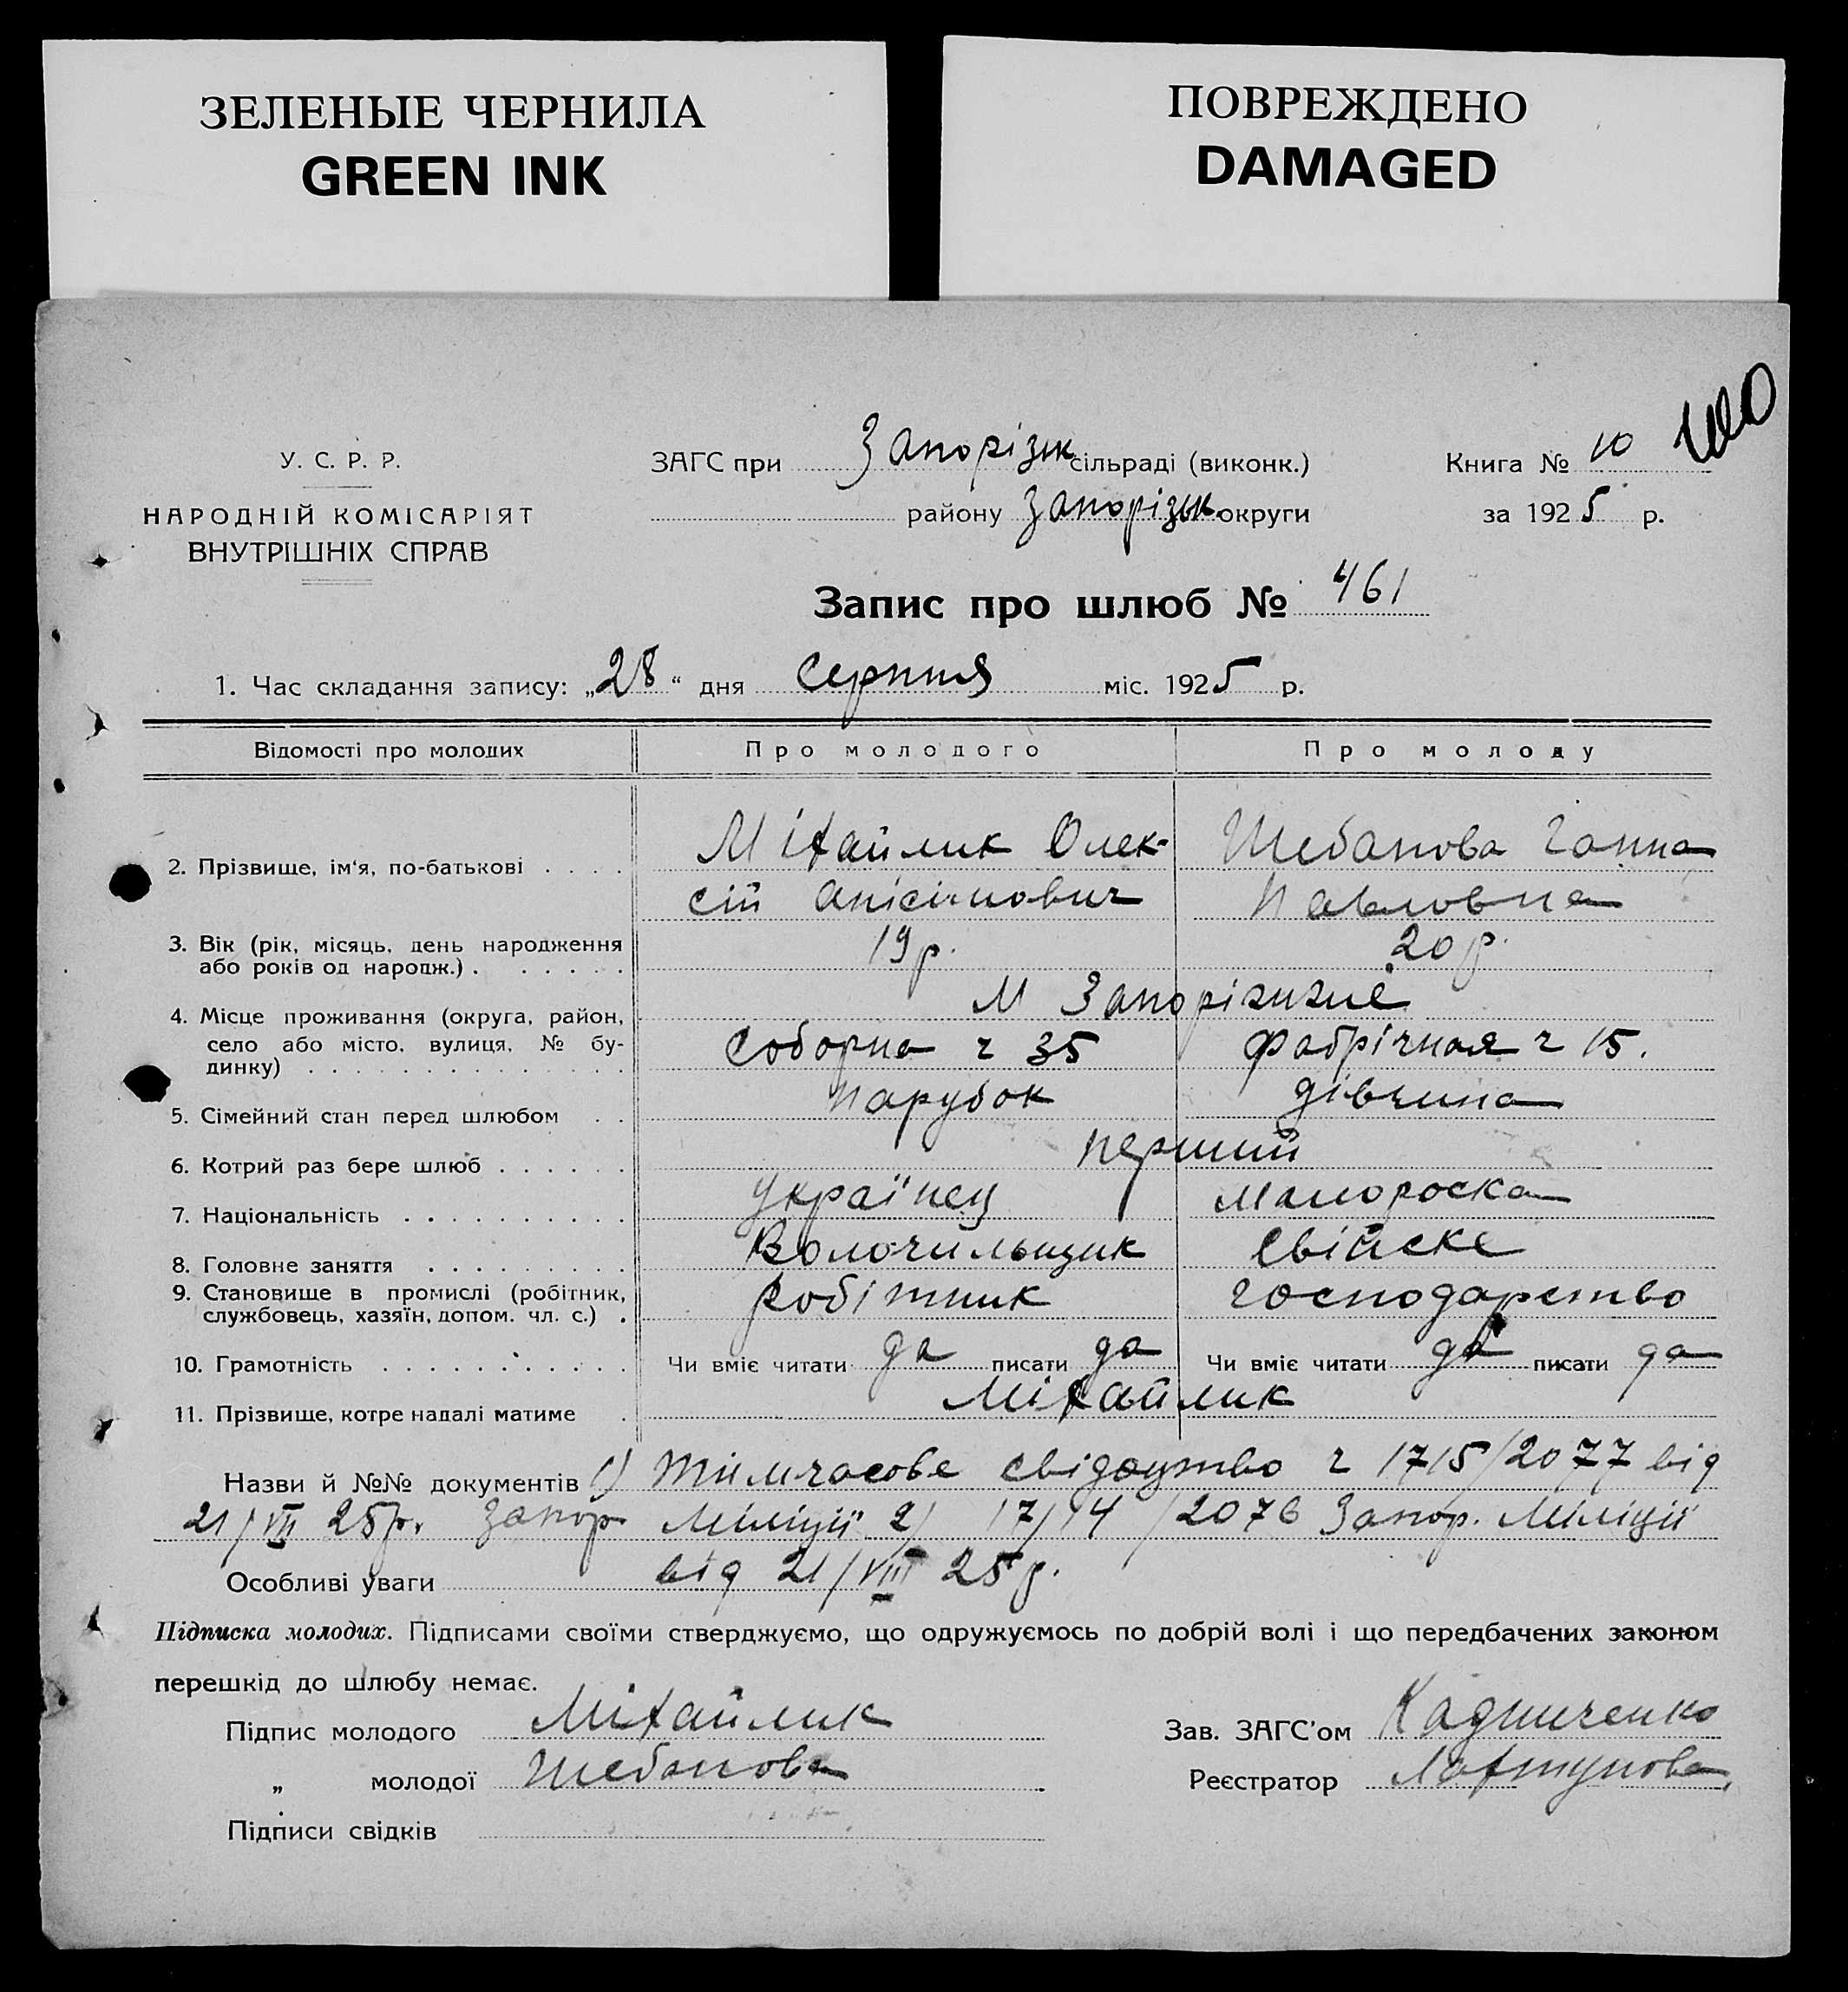 ЗЕЛЕНЫЕ ЧЕРНИЛА
GREEN INK
ПОВРЕЖДЕНО
DAMAGED
У. С. Р. Р.
НАРОДНІЙ КОМІСАРІЯТ
ВНУТРІШНІХ СПРАВ
ЗАГС при Запорізьк сільраді (виконк.)
району Запорізьк. округи
Книга № 10
за 1925 р.
Запис про шлюб № 461
1. Час складання запису: „28“ дня серпня міс. 1925 р.
Відомості про молодих Про молодого Про молоду
2. Прізвище, ім'я, по-батькові . . . . Міхайлик Олек- Шебанова Ганна
сій Анісімович Павловна
3. Вік (рік, місяць, день народження
або років од народж.) . . . . . . 19 р. 20 р.
4. Місце проживання (округа, район, М Запоріжжє
село або місто, вулиця, № бу- Соборна ч 35 Фабрічная ч 15.
динку) . . . . . . . . . . . . . .
5. Сімейний стан перед шлюбом . . парубок дівчина
6. Котрий раз бере шлюб . . . . . . перший
7. Національність . . . . . . . . . . Українец малороска
8. Головне заняття . . . . . . . . . Волочильщик свійске
9. Становище в промислі (робітник,
службовець, хазяїн, допом. чл. с.) . робітник господарство
10. Грамотність . . . . . . . . . . . Чи вміє читати да писати да Чи вміє читати да писати да
11. Прізвище, котре надалі матиме . Міхайлик
Назви й №№ документів 1) Тимчасове свідоцтво ч 1715/2077 від
21/VII 25р. Запор. Міліції 2) 17/14/2076 Запор. Міліції
Особливі уваги від 21/VIII 25р.
Підписка молодих. Підписами своїми стверджуємо, що одружуємось по добрій волі і що передбачених законом
перешкід до шлюбу немає.
Підпис молодого Міхайлик
Зав. ЗАГС'ом
„ молодої Шебанова
Реєстратор
Підписи свідків